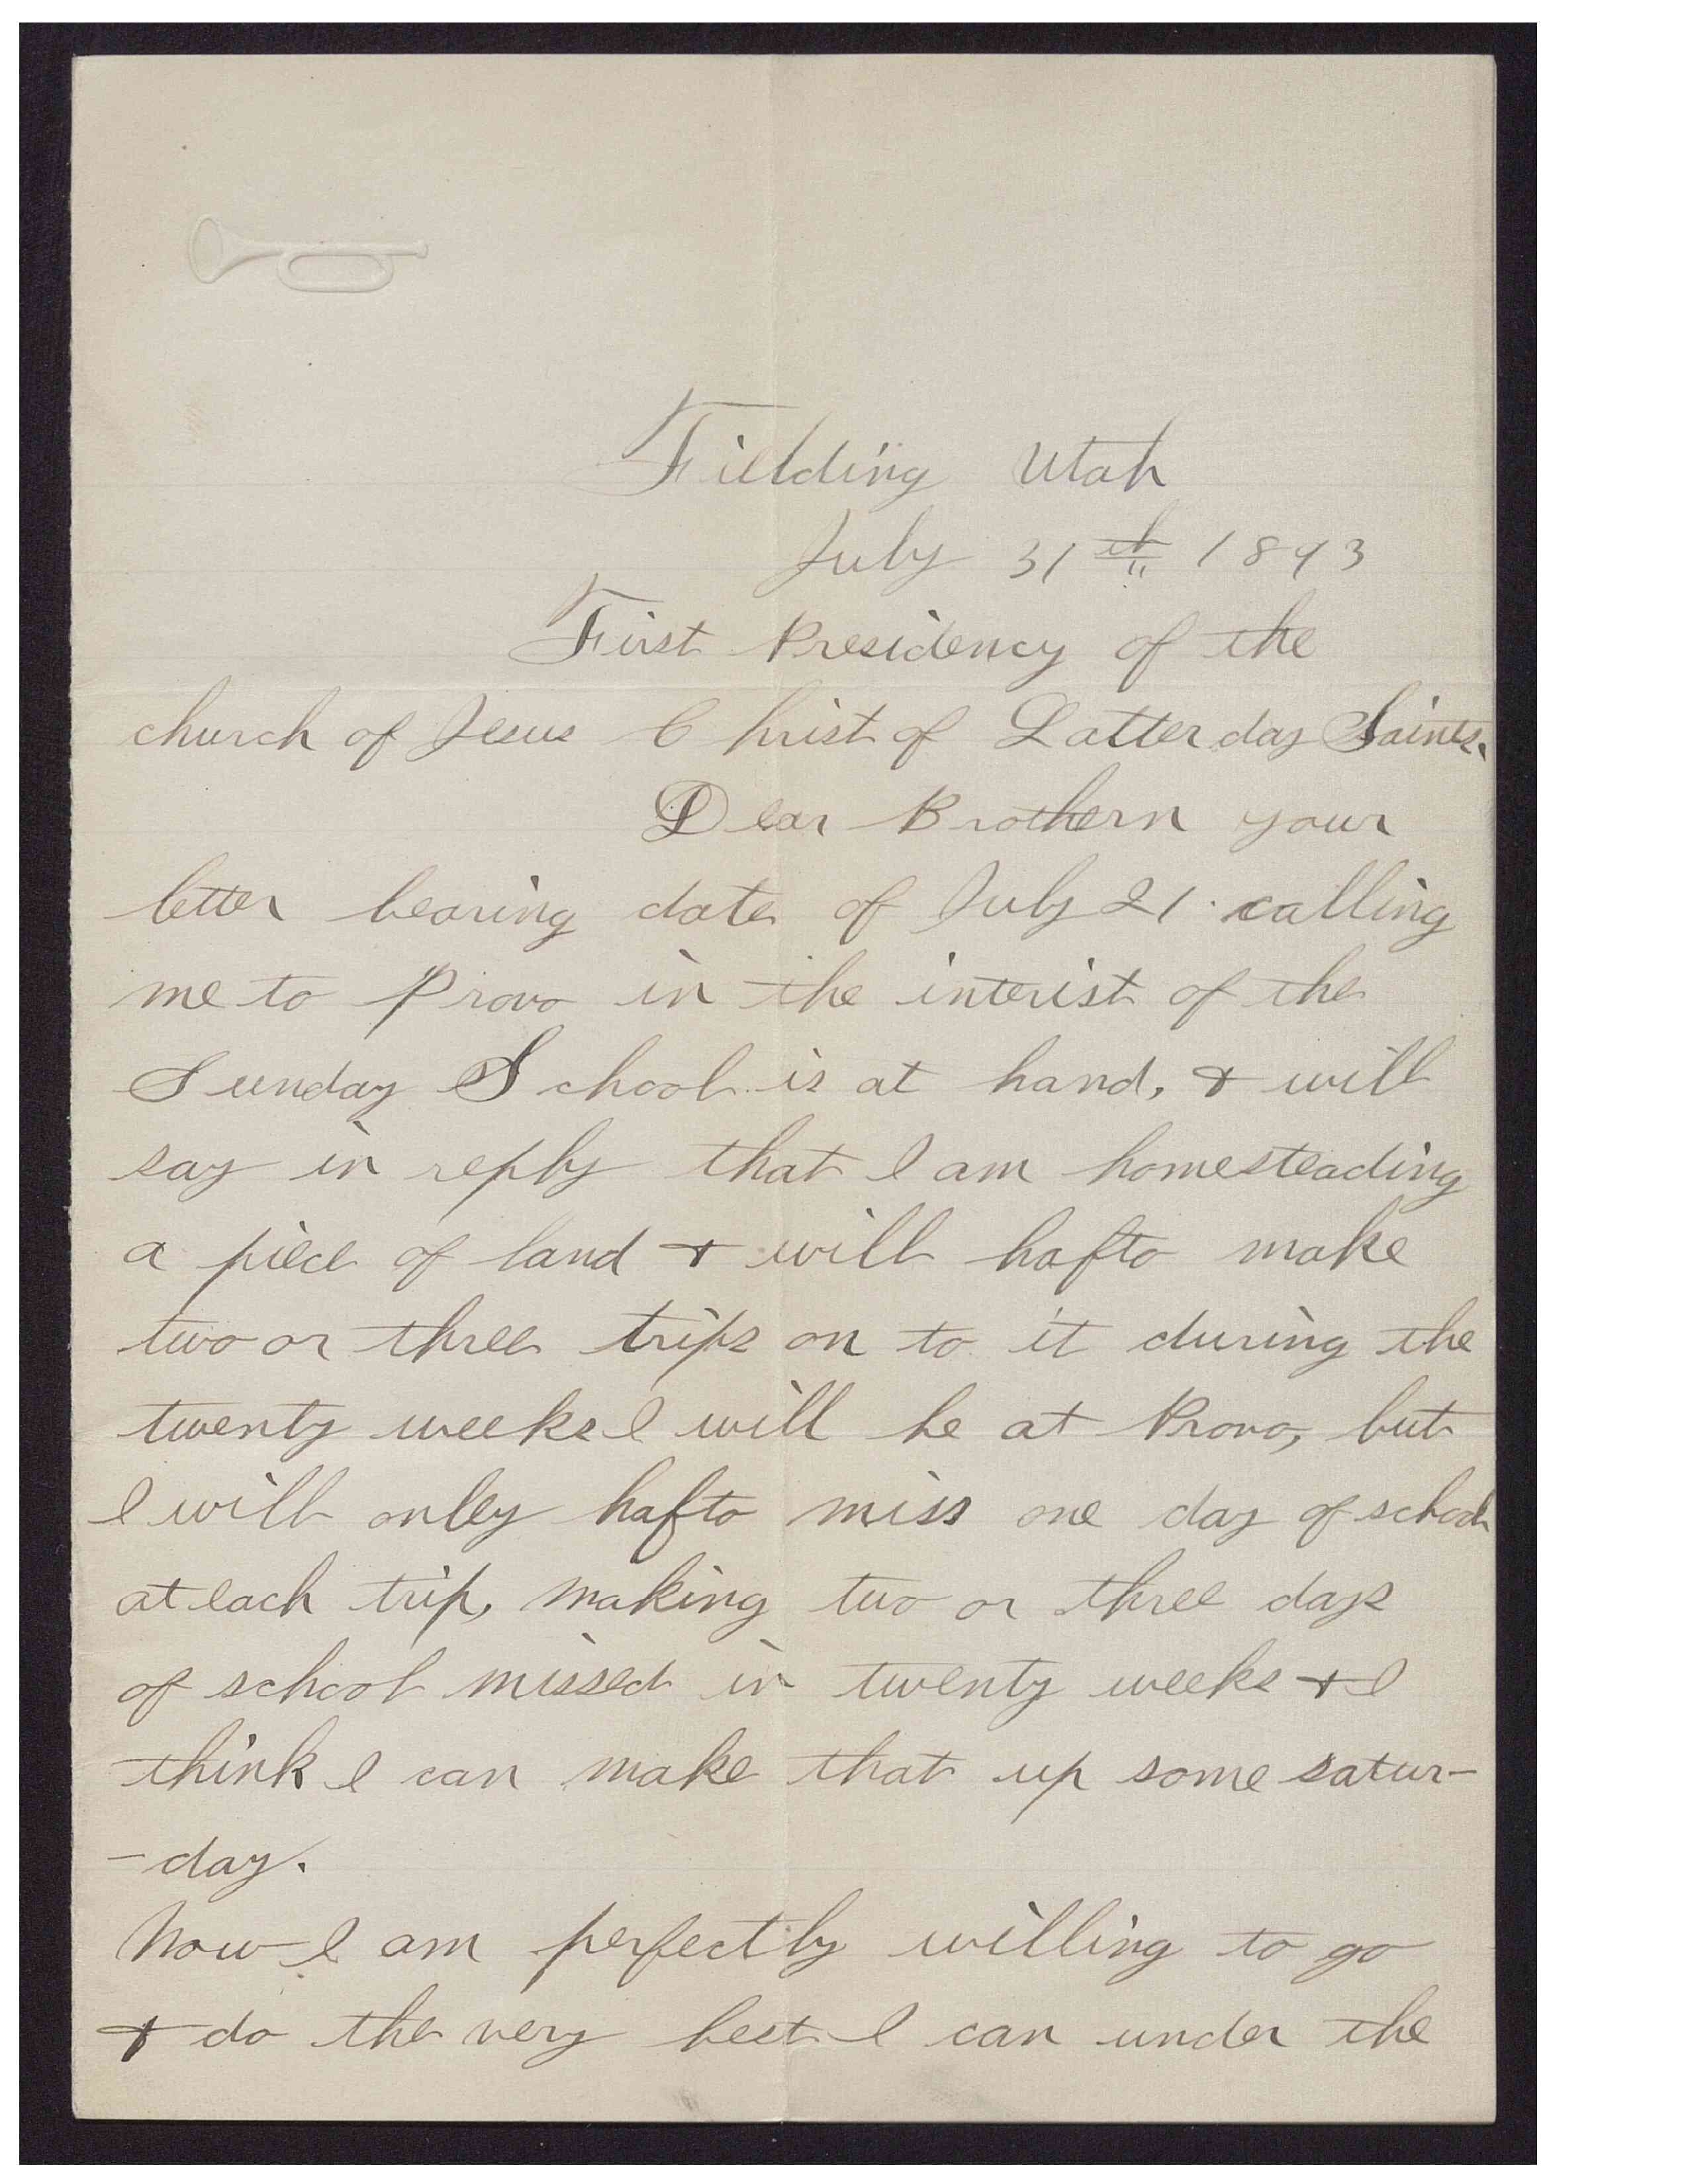 Fielding Utah
July 31th 1893
First Presidency of the
church of Jesus Christ of Latter day Saints.
Dear Brothern your
letter bearing date of July 21. calling
me to Provo in the interist of the
Sunday School is at hand, & will
say in reply that I am homesteading
a piece of land & will hafto make
two or three trips on to it during the
twenty weeks I will be at Provo, but
I will onley hafto miss one day of school
at each trip, making two or three days
of school missed in twenty weeks & I
think I can make that up some satur-
-day.
Now I am perfectly willing to go
& do the very best I can under the